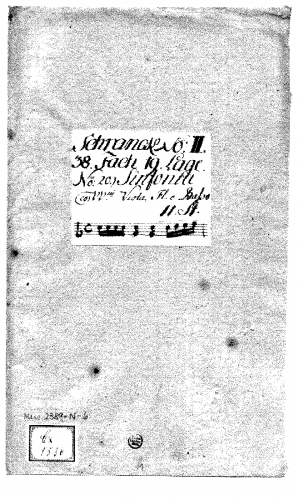 Schranck No: III.
38. Fach 19. Lage.
No: 20.) Sinfonia
Co VVni Viola, Fl. e Basso
11 St.
Mus. 2389-N-6
Cx
1836